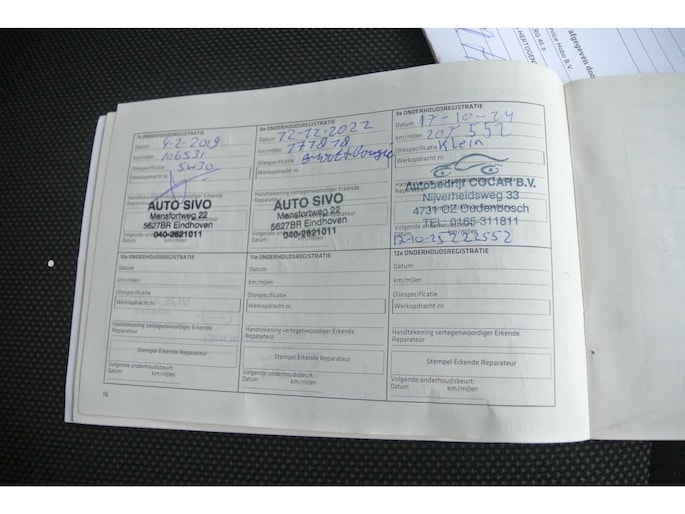 HERTOGEN
rvice Hobo B.V
afgegeven door
7e ONDERHOUDSREGISTRATIE
Datum 4-2-2019
km/mijlen 106531
Oliespecificatie 5W30
Werkopdracht nr.
Handtekening vertegenwoordiger Erkende
Reparateur
AUTO SIVO
Mensfortweg 22
5627BR Eindhoven
040-2621011
8e ONDERHOUDSREGISTRATIE
Datum 22-12-2022
km/mijlen 177818
Oliespecificatie
Werkopdracht nr.
AUTO SIVO
Mensfortweg 22
5627BR Eindhoven
040-2621011
9e ONDERHOUDSREGISTRATIE
Datum 17-10-24
km/mijlen 207552
Oliespecificatie Klein
Werkopdracht
Autobedrijf COCAR B.V.
Nijverheidsweg 33
4731 OZ Oudenbosch
TEL: 0165-311811
Volgende onderhoudsbeurt:
17-10-25 222552
10e ONDERHOUDSREGISTRATIE
Datum
km/mijlen
Oliespecificatie
Werkopdracht nr.
Handtekening vertegenwoordiger Erkende
Reparateur
Stempel Erkende Reparateur
Volgende onderhoudsbeurt:
Datum km/mijlen
11e ONDERHOUDSREGISTRATIE
Datum
km/mijlen
Oliespecificatie
Werkopdracht nr.
Handtekening vertegenwoordiger Erkende
Reparateur
Stempel Erkende Reparateur
Volgende onderhoudsbeurt:
Datum km/mijlen
12e ONDERHOUDSREGISTRATIE
Datum
km/mijlen
Oliespecificatie
Werkopdracht nr.
Handtekening vertegenwoordiger Erkende
Reparateur
Stempel Erkende Reparateur
Volgende onderhoudsbeurt:
Datum km/mijlen
16